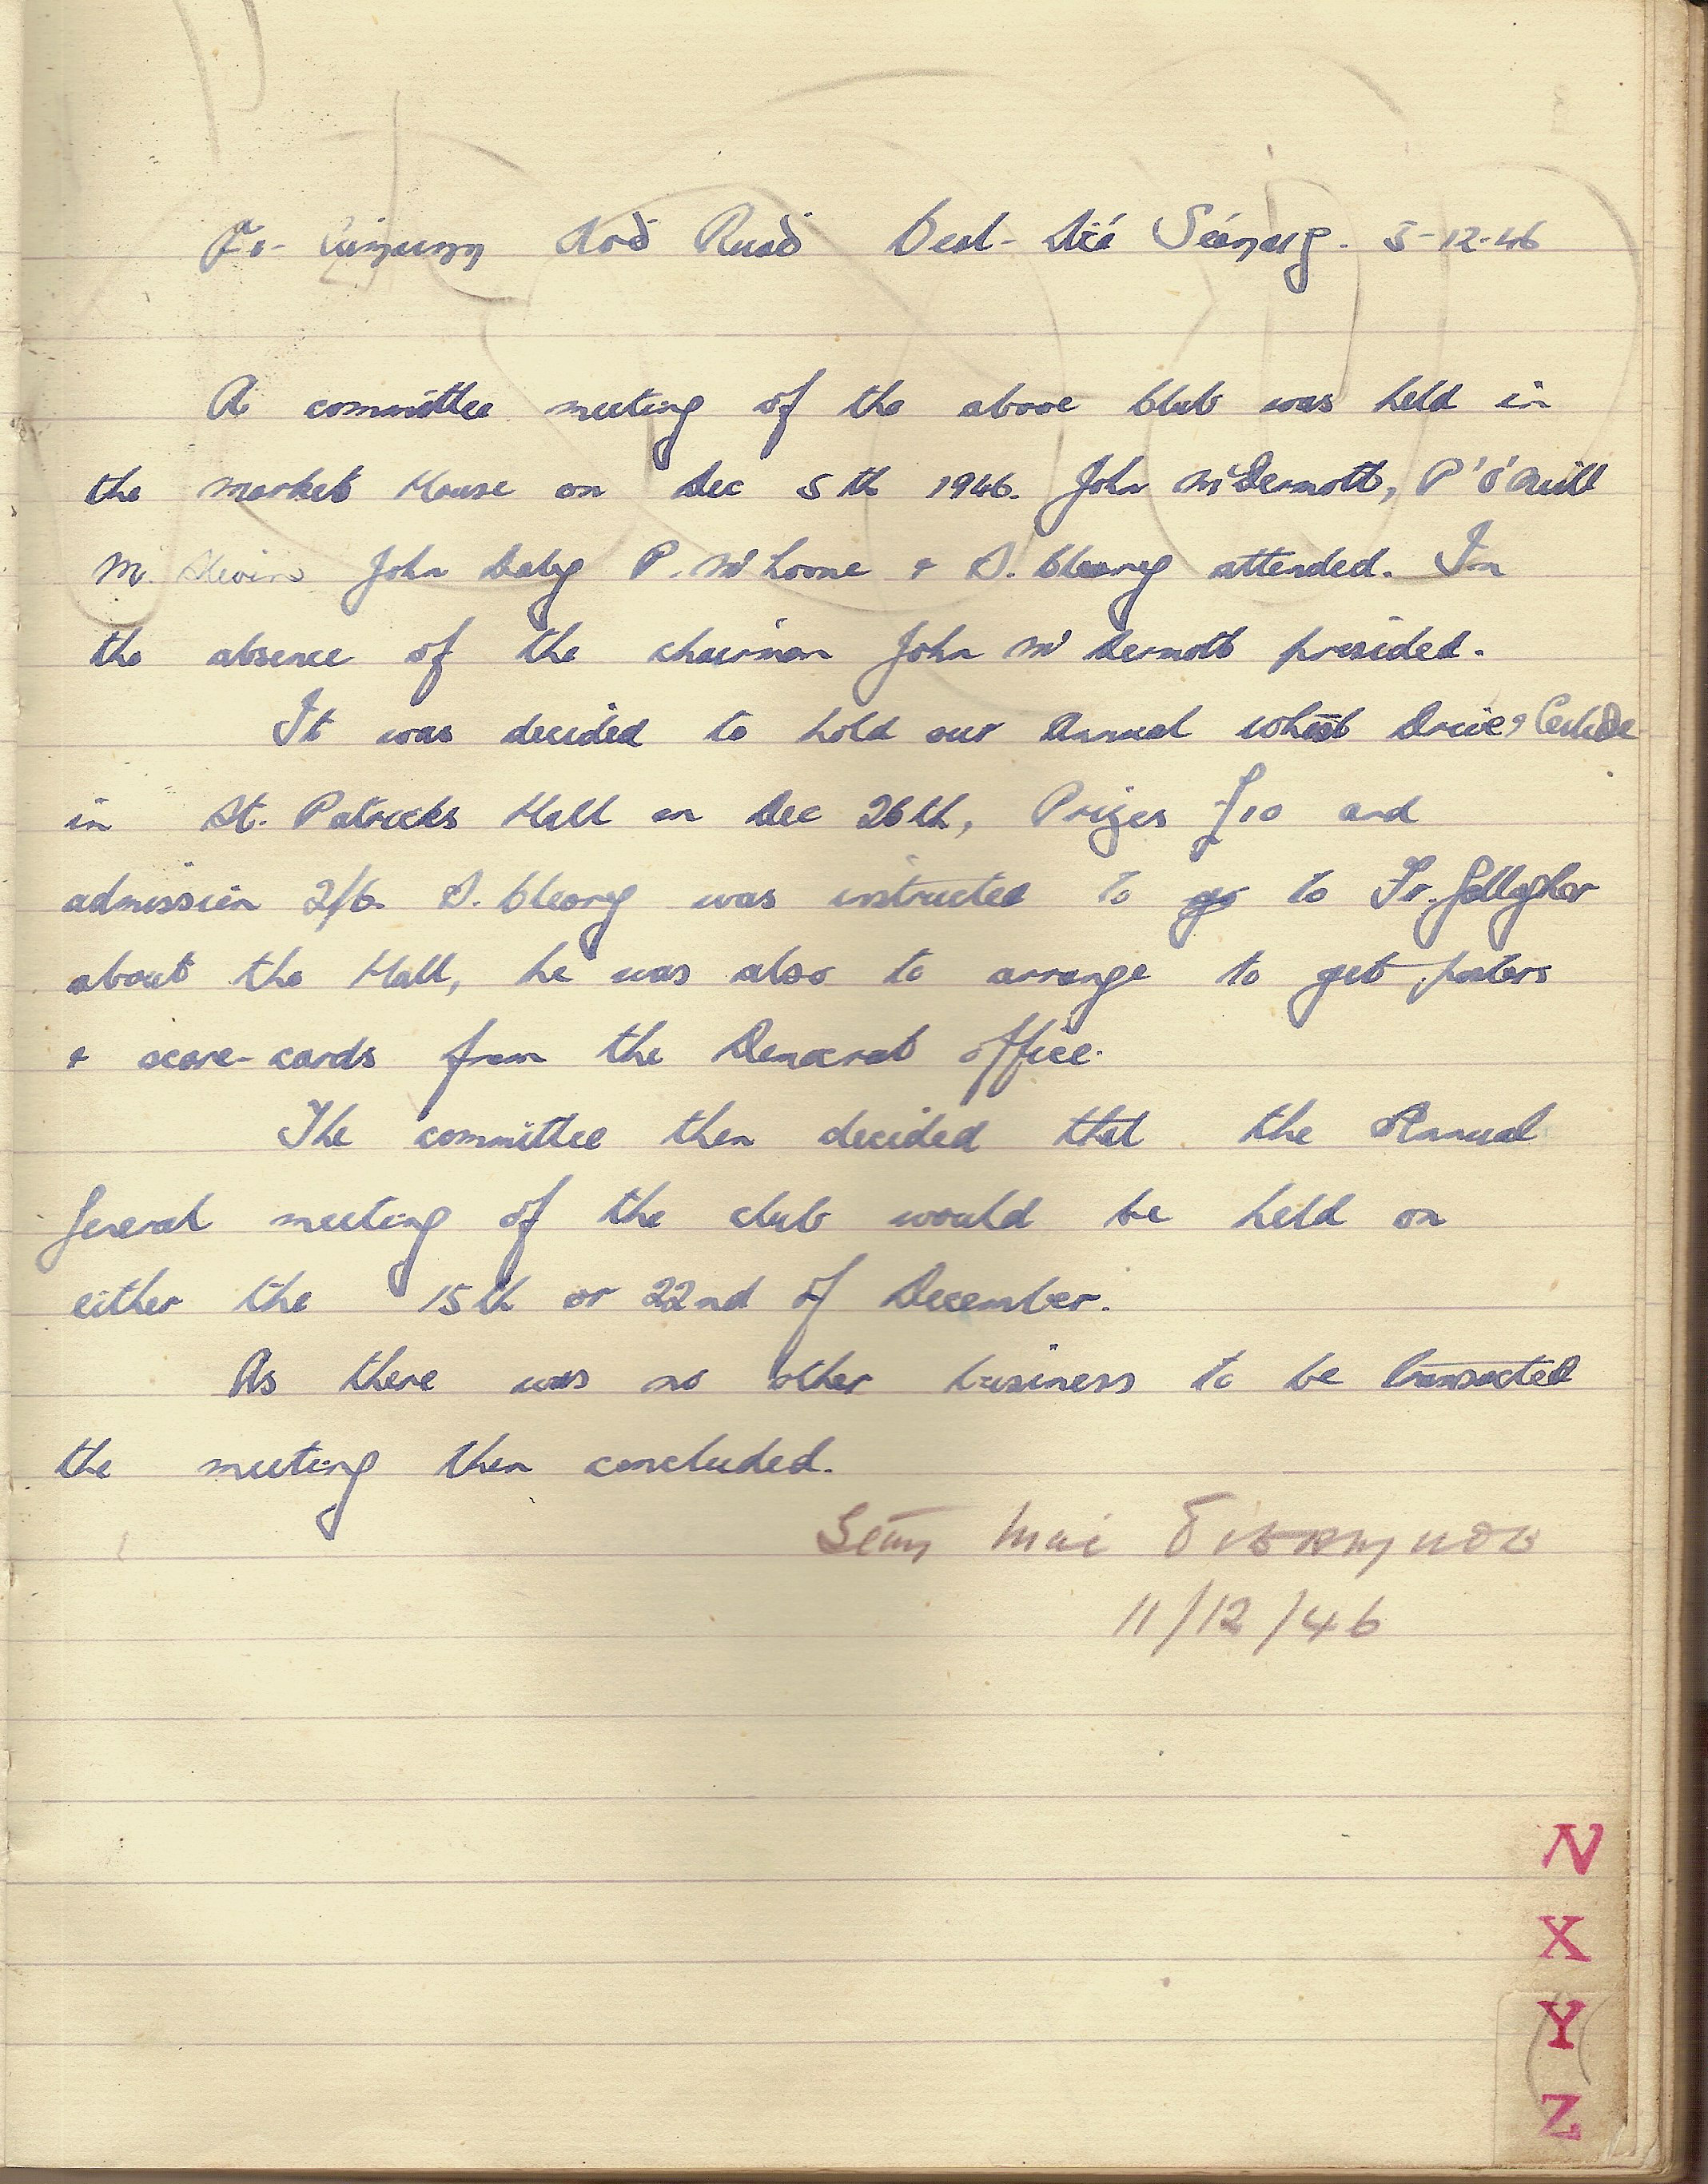 Aoḋ Ruaḋ 5-12-46
A committee meeting of the above Club was held in
the market House on Dec 5th 1946. John McDermott, P'O'Neill
M. Slevin John Daly P. M' Loone + S. Cleary attended. In
the absence of the chairman John M' Dermott presided.
It was decided to hold our Annual Whist Drive & Ceilidhe
in St. Patricks Hall on Dec 26th, Prizes £10 and
admission 2/6. S. Cleary was instructed to go to Fr. Gallagher
about the Hall, he was also to arrange to get posters
+ score-cards from the Democrat office.
The committee then decided that the Annual
General meeting of the club would be held on
either the 15th or 22nd of December.
As there was no other business to be transacted
the meeting then concluded.
Seán Mac
11/12/46
N
X
Y
Z